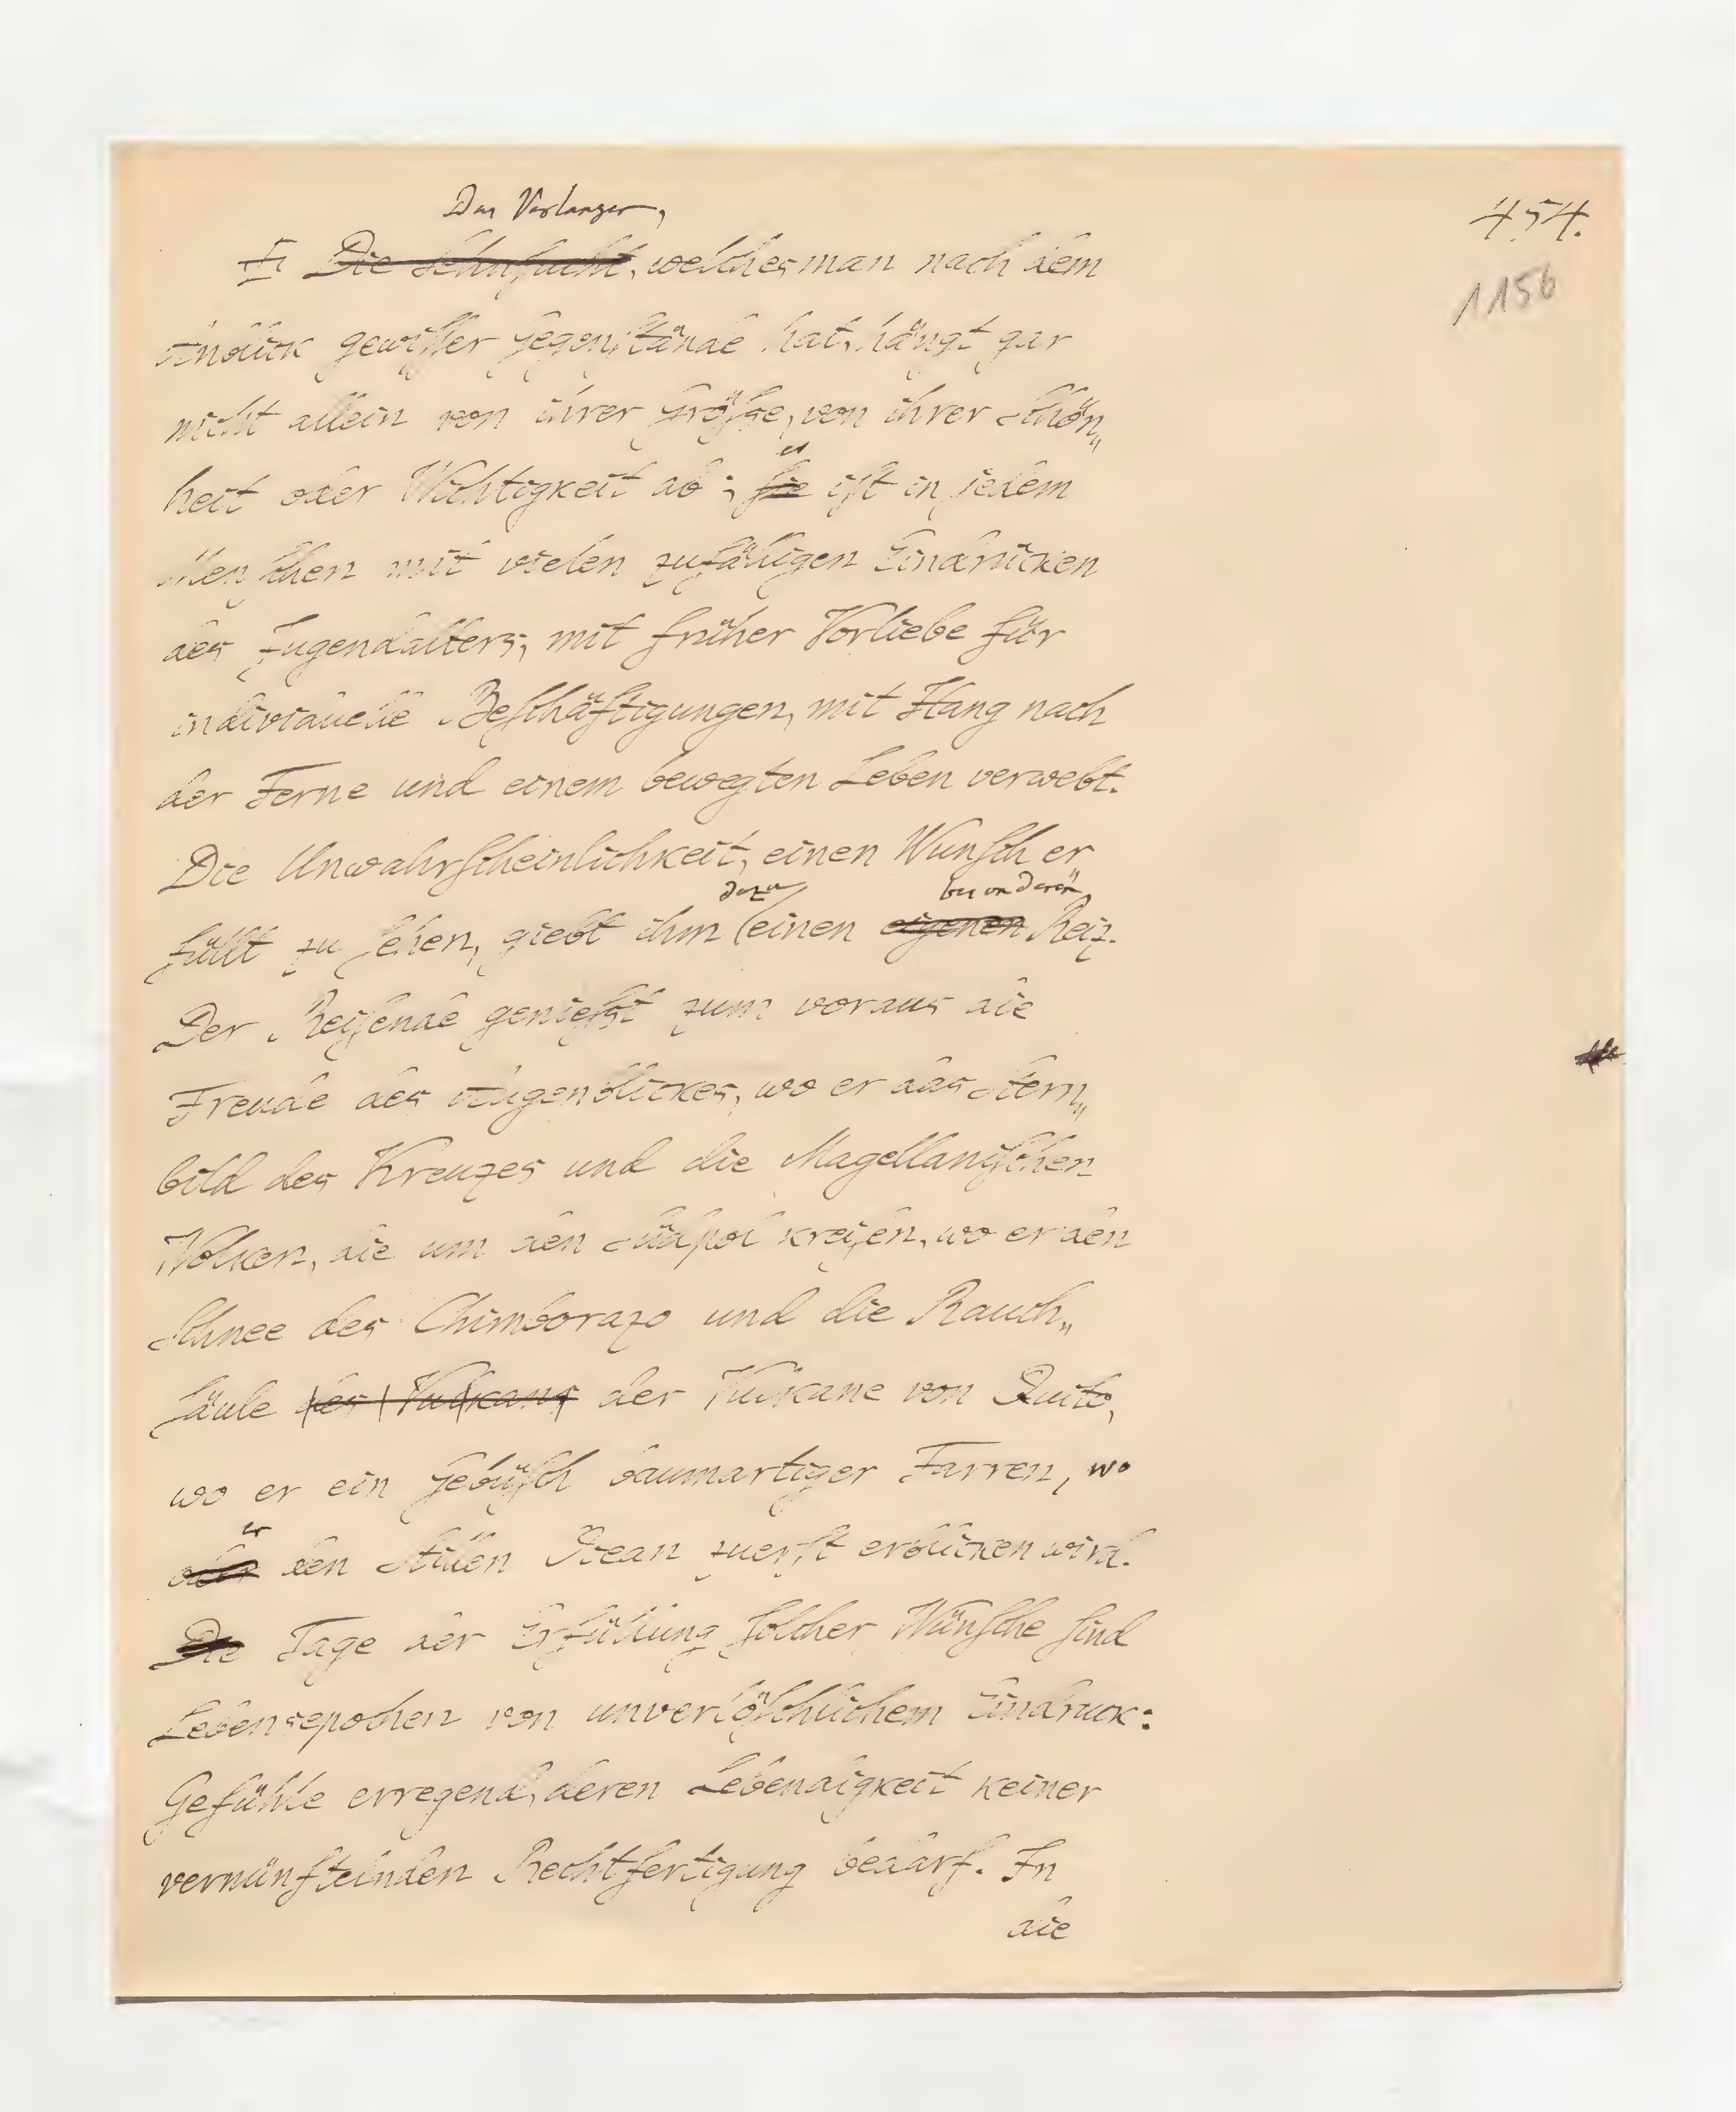 454.
1156
Das Verlangen,
Die Sehnsucht, welches man nach dem
Anblick gewisser Gegenstände hat, hängt gar
nicht allein von ihrer Größe, von ihrer Schön„
es
heit oder Wichtigkeit ab; sie ist in jedem
Menschen mit vielen zufälligen Eindrücken
des Jugendalters, mit früher Vorliebe für
individuelle Beschäftigungen, mit Hang nach
der Ferne und einem bewegten Leben verwebt.
Die Unwahrscheinlichkeit, einen Wunsch er
dazu besonderen
füllt zu sehen, giebt ihm einen eigenen Reiz.
Der Reisende genießt zum voraus die
Freude des Augenblickes, wo er das Stern„
bild des Kreuzes und die Magellanischen
Wolken, die um den Südpol kreisen, wo er den
Schnee des Chimborazo und die Rauch„
säule des Vulkans der Vulkane von Quito,
wo er ein Gebüsch baumartiger Farren, wo
er
oder den Stillen Ocean zuerst erblicken wird.
Die Tage der Erfüllung solcher Wünsche sind
Lebensepochen von unverlöschlichem Eindruck:
Gefühle erregend, deren Lebendigkeit keiner
vernünftelnden Rechtfertigung bedarf. In
die